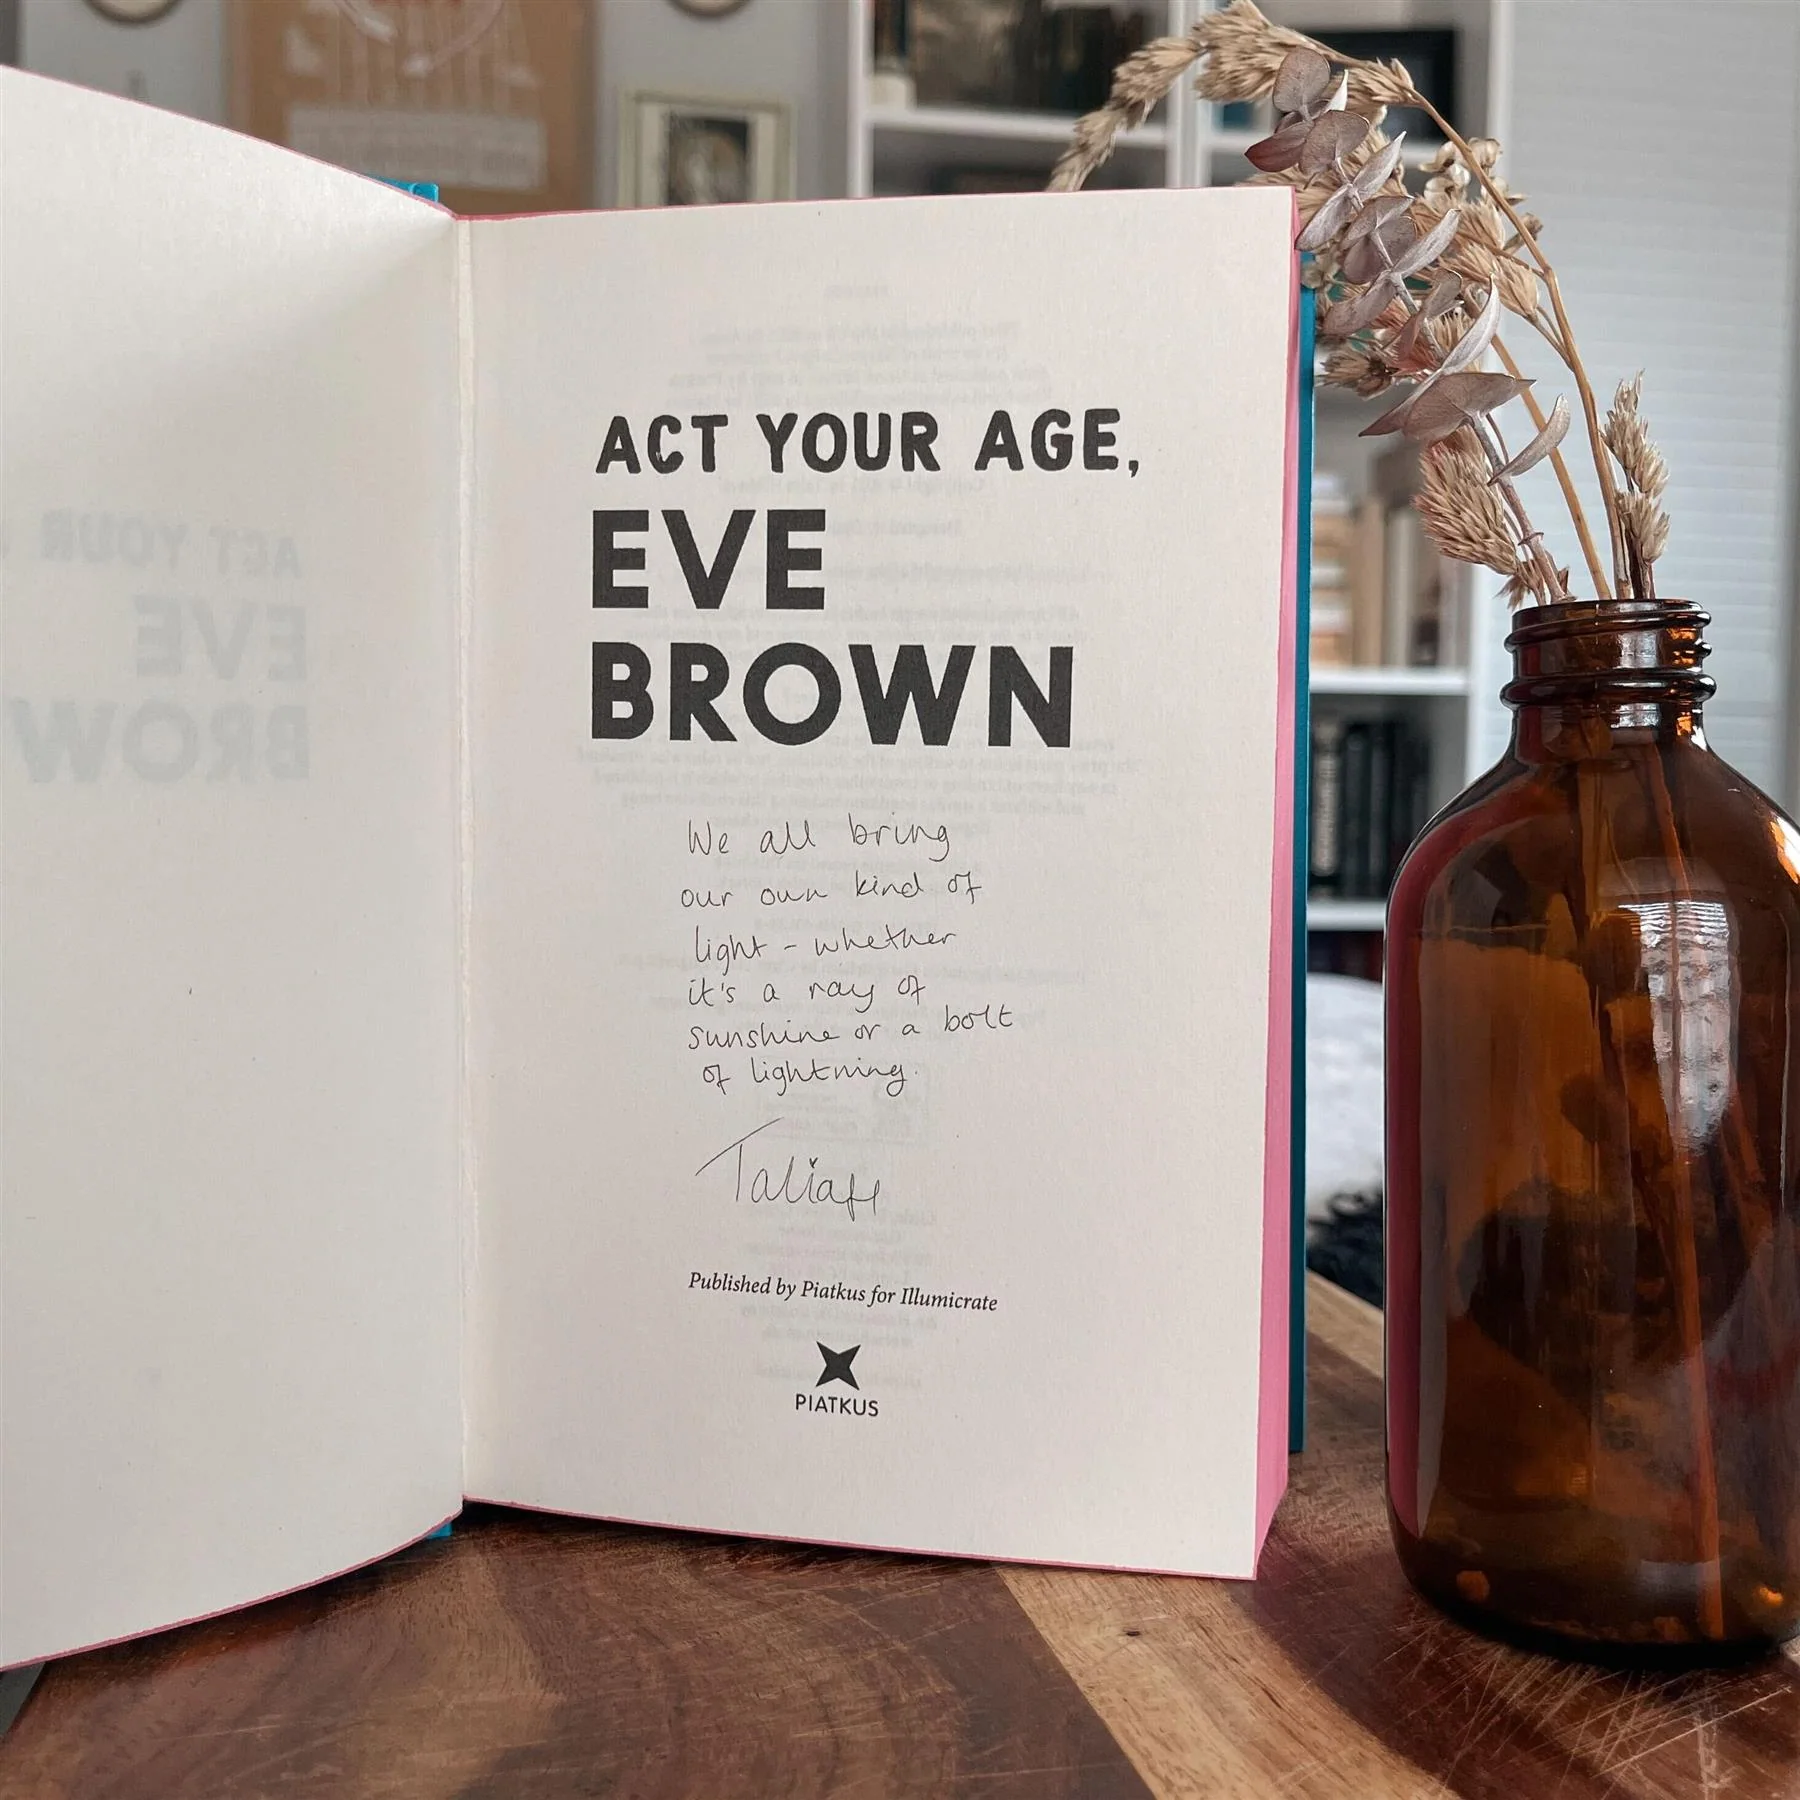 ACT YOUR AGE,
EVE
BROWN
We all bring
our own kind of
light - whether
it's a ray of
sunshine or a bolt
of lightning.
TaliaH
Published by Piatkus for Illumicrate
PIATKUS